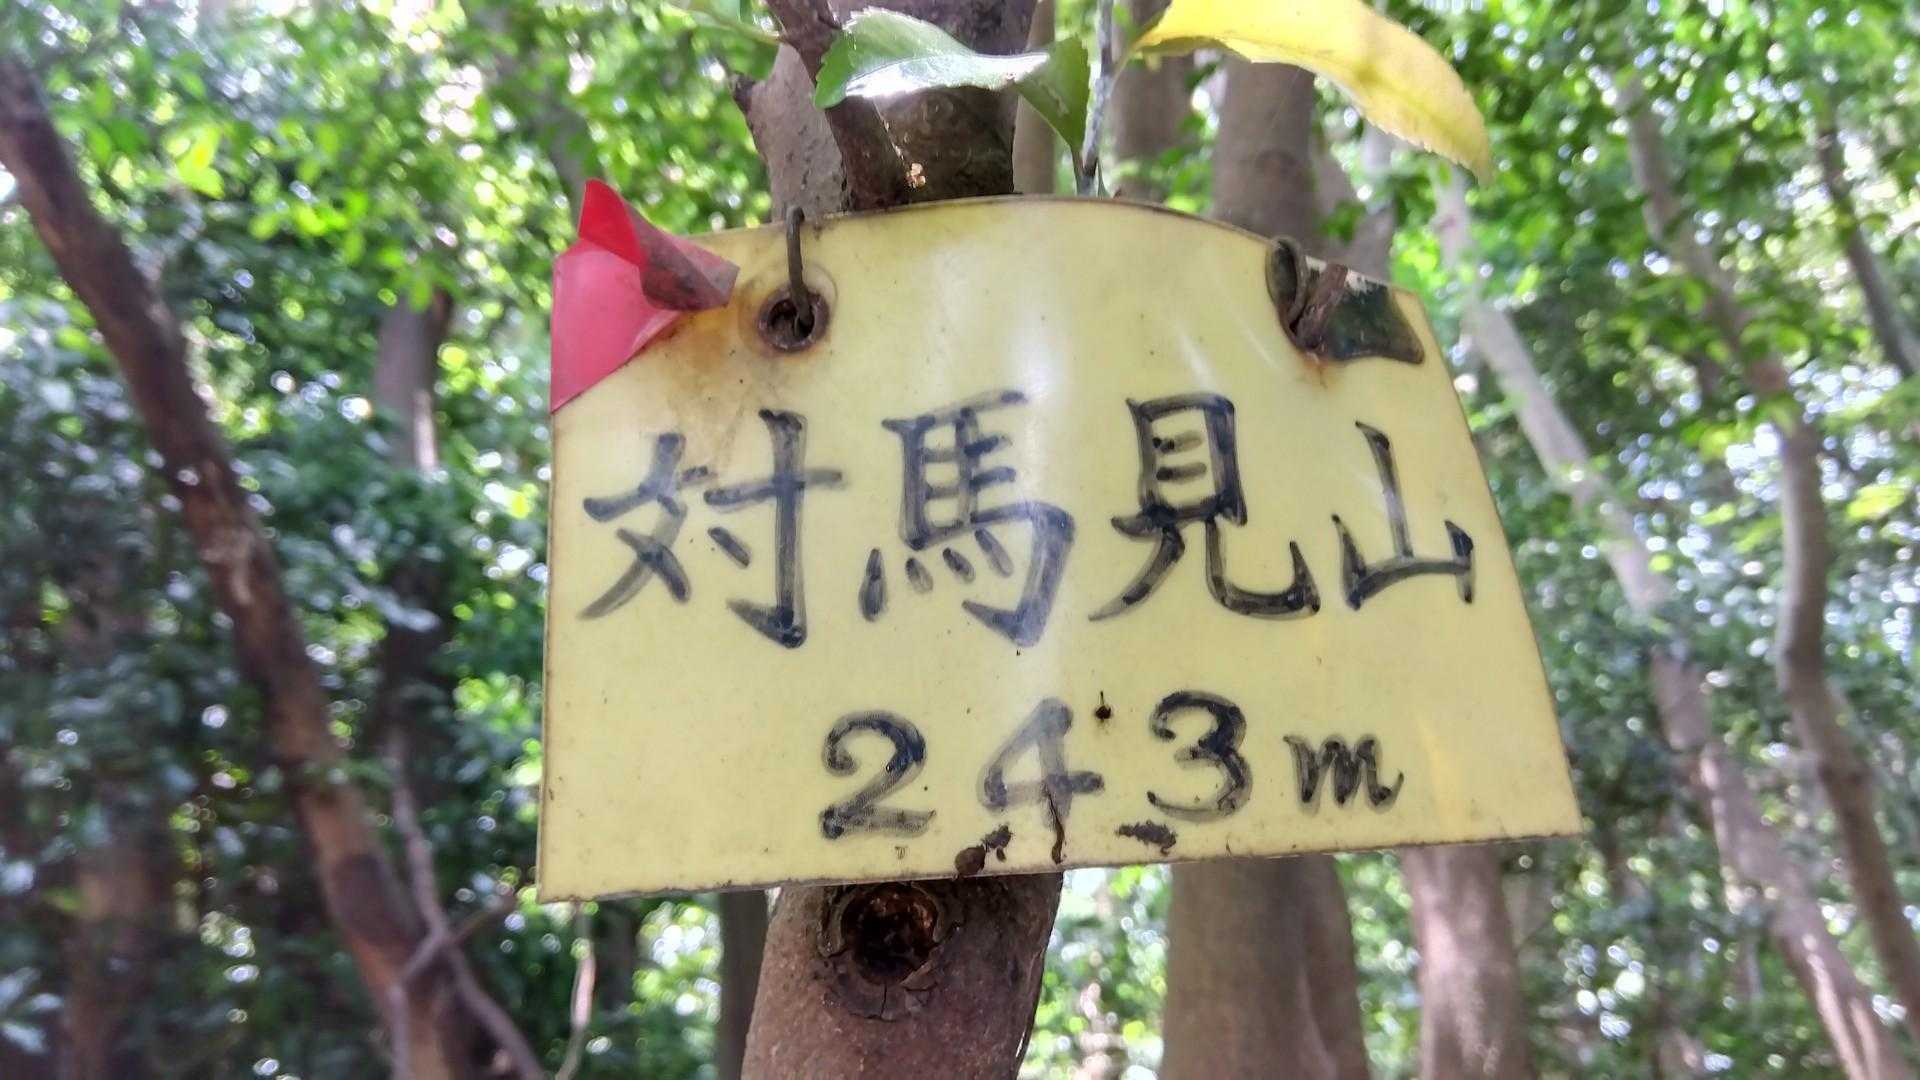 対馬見山
243m